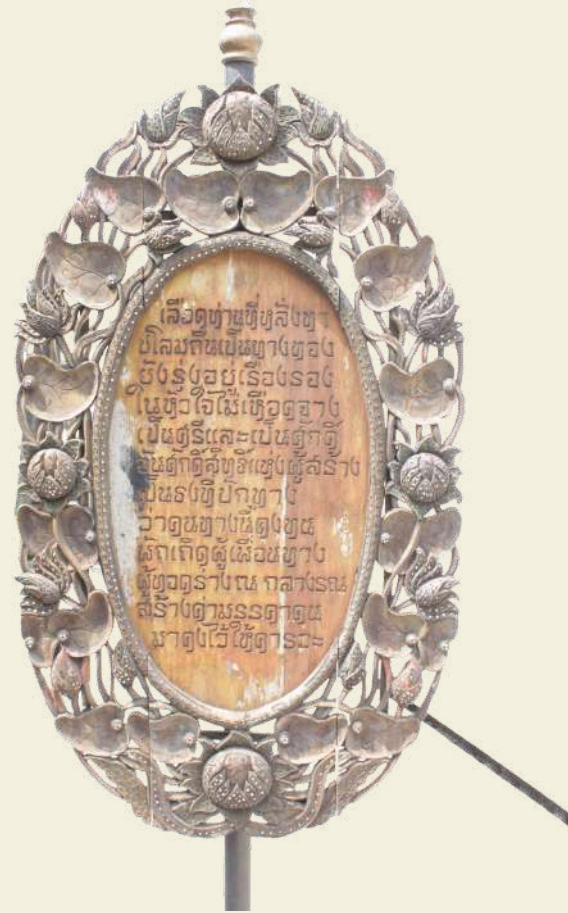 เลือดท่านที่หลั่งทา
ชโลมถิ่นเป็นทางทอง
ยังรุ่งอยู่เรืองรอง
ในหัวใจไม่เหือดจาง
เป็นศรีและเป็นศักดิ์
อันศักดิ์สิทธิ์แห่งผู้สร้าง
เป็นธงที่ปักทาง
ว่าคนทางนี้คงทน
พักเถิดผู้เพื่อนทาง
ผู้ทอดร่าง ณ กลางรณ
สร้างค่ามรรคาคน
มาคงไว้ให้คารวะ